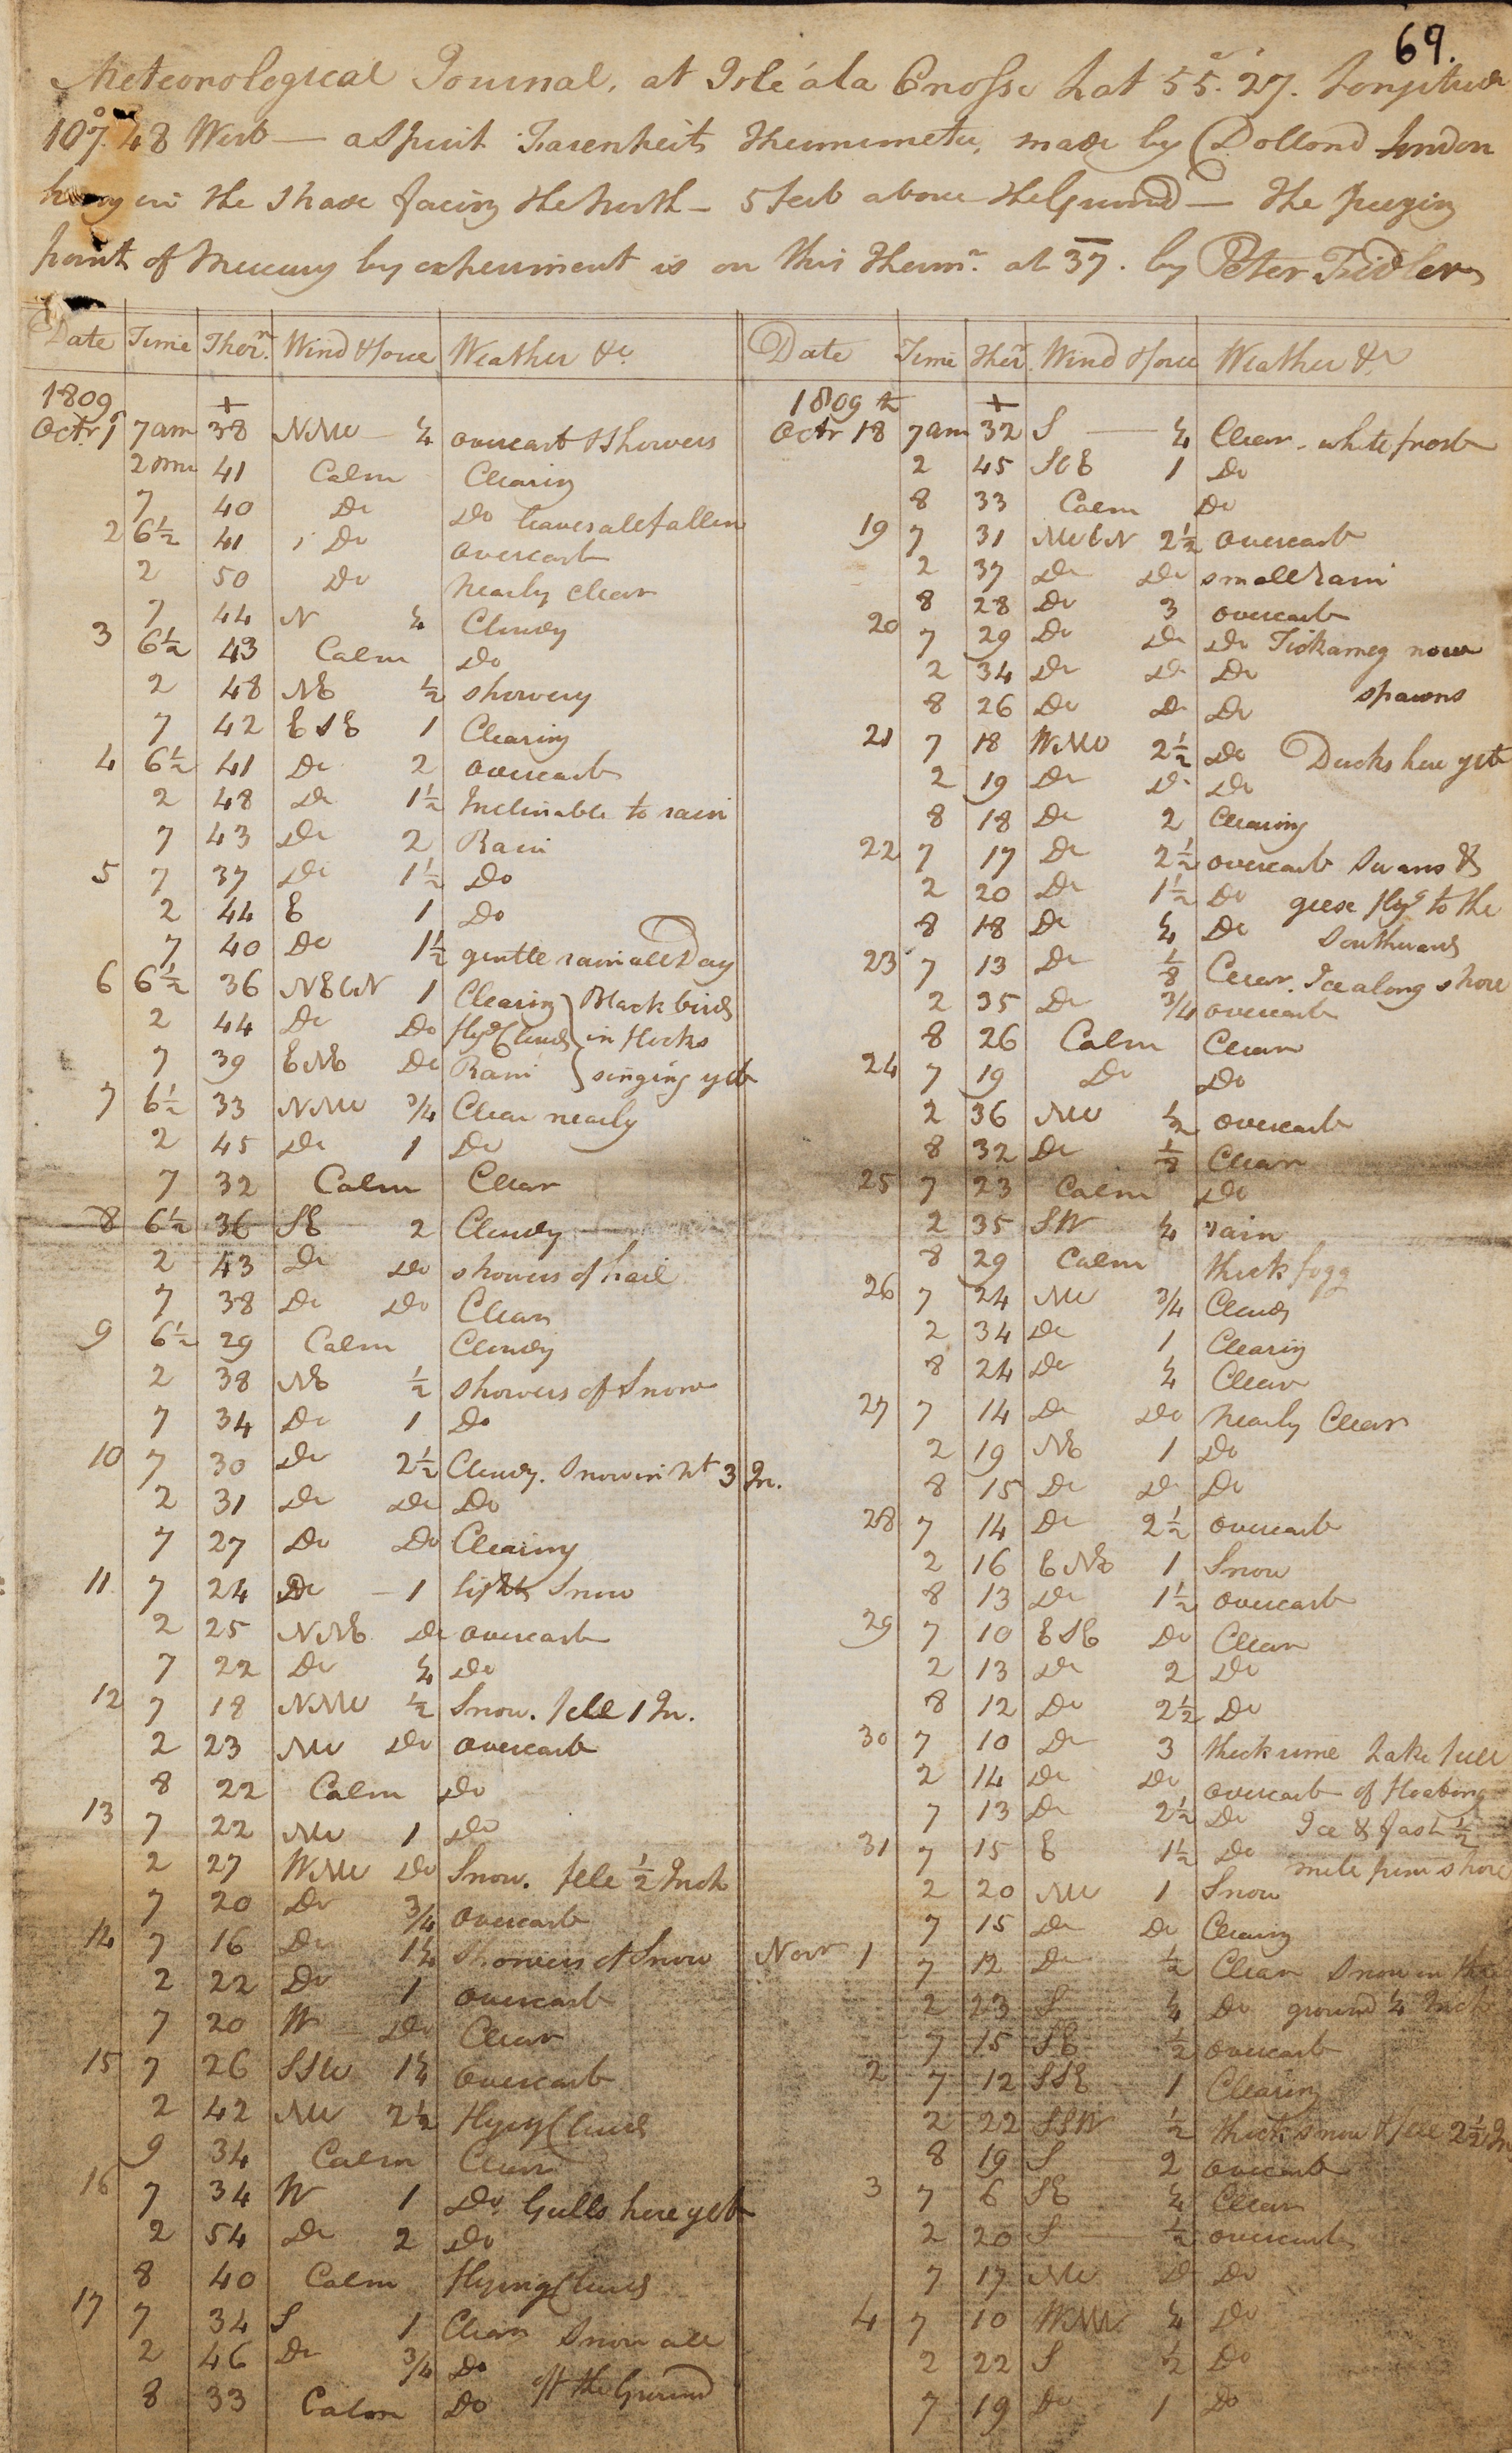 69.
Meteorological Journal, at Isle á la Crosse Lat 55°. 27'. Longitude
107°. 48 West — a Spirit Farenheits Thermometer, made by Dollond London
hung in the Shade facing the North — 5 feet above the Ground — The freezing
point of Mercury by experiment is on this Therm.r at 37. by Peter Fidler
Date Time Ther.m Wind & force Weather &c.
1809 +
Octr 1 7 am 38 NNW — ¼ overcast & showers
2 pm 41 Calm Clearing
7 40 Do Do leaves all fallen
2 6½ 41 Do overcast
2 50 Do nearly clear
7 44 N ¼ Cloudy
3 6½ 43 Calm Do
2 48 NE ½ showery
7 42 ESE 1 Clearing
4 6½ 41 Do 2 overcast
2 48 Do 1½ Inclinable to rain
7 43 Do 2 Rain
5 7 37 Do 1½ Do
2 44 E 1 Do
7 40 Do 1½ gentle rain all Day
6 6½ 36 NEbN 1 Clearing } Black birds
2 44 Do Do flyg Clouds } in flocks
7 39 ENE Do Rain } singing yet
7 6½ 33 NNW ¾ Clear nearly
2 45 Do 1 Do
7 32 Calm Clear
8 6½ 36 SE 2 Cloudy
2 43 Do Do showers of hail
7 38 Do Do Clear
9 6½ 29 Calm Cloudy
2 38 NE ½ showers of Snow
7 34 Do 1 Do
10 7 30 Do 2½ Cloudy. Snow in Nt 3 In.
2 31 Do Do Do
7 27 Do Do Clearing
11 7 24 Do — 1 light Snow
2 25 NNE Do overcast
7 22 Do ¼ Do
12 7 18 NNW ½ Snow. fell 1 In.
2 23 NW Do overcast
8 22 Calm Do
13 7 22 NW 1 Do
2 27 WNW Do Snow. fell ½ Inch
7 20 Do ¾ overcast
14 7 16 Do 1¼ Showers of Snow
2 22 Do 1 overcast
7 20 W Do Clear
15 7 26 SSW 1¼ overcast
2 42 NW 2½ flying Clouds
9 34 Calm Clear
16 7 34 W 1 Do. Gulls here yet
2 54 Do 2 Do
8 40 Calm flying Clouds
17 7 34 S 1 Clear Snow all
2 46 Do ¾ Do off the Ground
8 33 Calm Do
Date Time Ther.r Wind & force Weather &c
1809 +
Octr 18th 7 am 32 S — ¼ Clear. white frost
2 45 SbE 1 Do
8 33 Calm Do
19 7 31 NWbN 2½ overcast
2 37 Do Do small rain
8 28 Do 3 overcast
20 7 29 Do Do Do Tickameg now
2 34 Do Do Do spawns
8 26 Do Do Do
21 7 18 WNW 2½ Do Ducks here yet
2 19 Do Do Do
8 18 Do 2 Clearing
22 7 17 Do 2½ overcast Swans &
2 20 Do 1½ Do geese flyg to the
8 18 Do ¼ Do Southward
23 7 13 Do ⅛ Clear. Ice along shore
2 35 Do ¾ overcast
8 26 Calm Clear
24 7 19 Do Do
2 36 NW ½ overcast
8 32 Do ½ Clear
25 7 23 Calm Do
2 35 SW ¼ rain
8 29 Calm thick fogg
26 7 24 NW ¾ Cloudy
2 34 Do 1 Clearing
8 24 Do ¼ Clear
27 7 14 Do Do nearly Clear
2 19 NE 1 Do
8 15 Do Do Do
28 7 14 Do 2½ overcast
2 16 ENE 1 Snow
8 13 Do 1½ overcast
29 7 10 ESE Do Clear
2 13 Do 2 Do
8 12 Do 2½ Do
30 7 10 Do 3 thick rime Lake full
2 14 Do Do overcast of floating
7 13 Do 2½ Do Ice & fast ½
31 7 15 E 1½ Do mile from shore
2 20 NW 1 Snow
7 15 Do Do Clearing
Novr 1 7 12 Do ½ Clear Snow on the
2 23 S ¼ Do ground ¼ Inch
7 15 SE ½ overcast
2 7 12 SSE 1 Clearing
2 22 SSW ½ thick snow & fell 2½ In
8 19 S 2 overcast
3 7 6 SE ¼ Clear
2 20 S ½ overcast
7 17 NW Do Do
4 7 10 WNW ¼ Do
2 22 S ½ Do
7 19 Do 1 Do